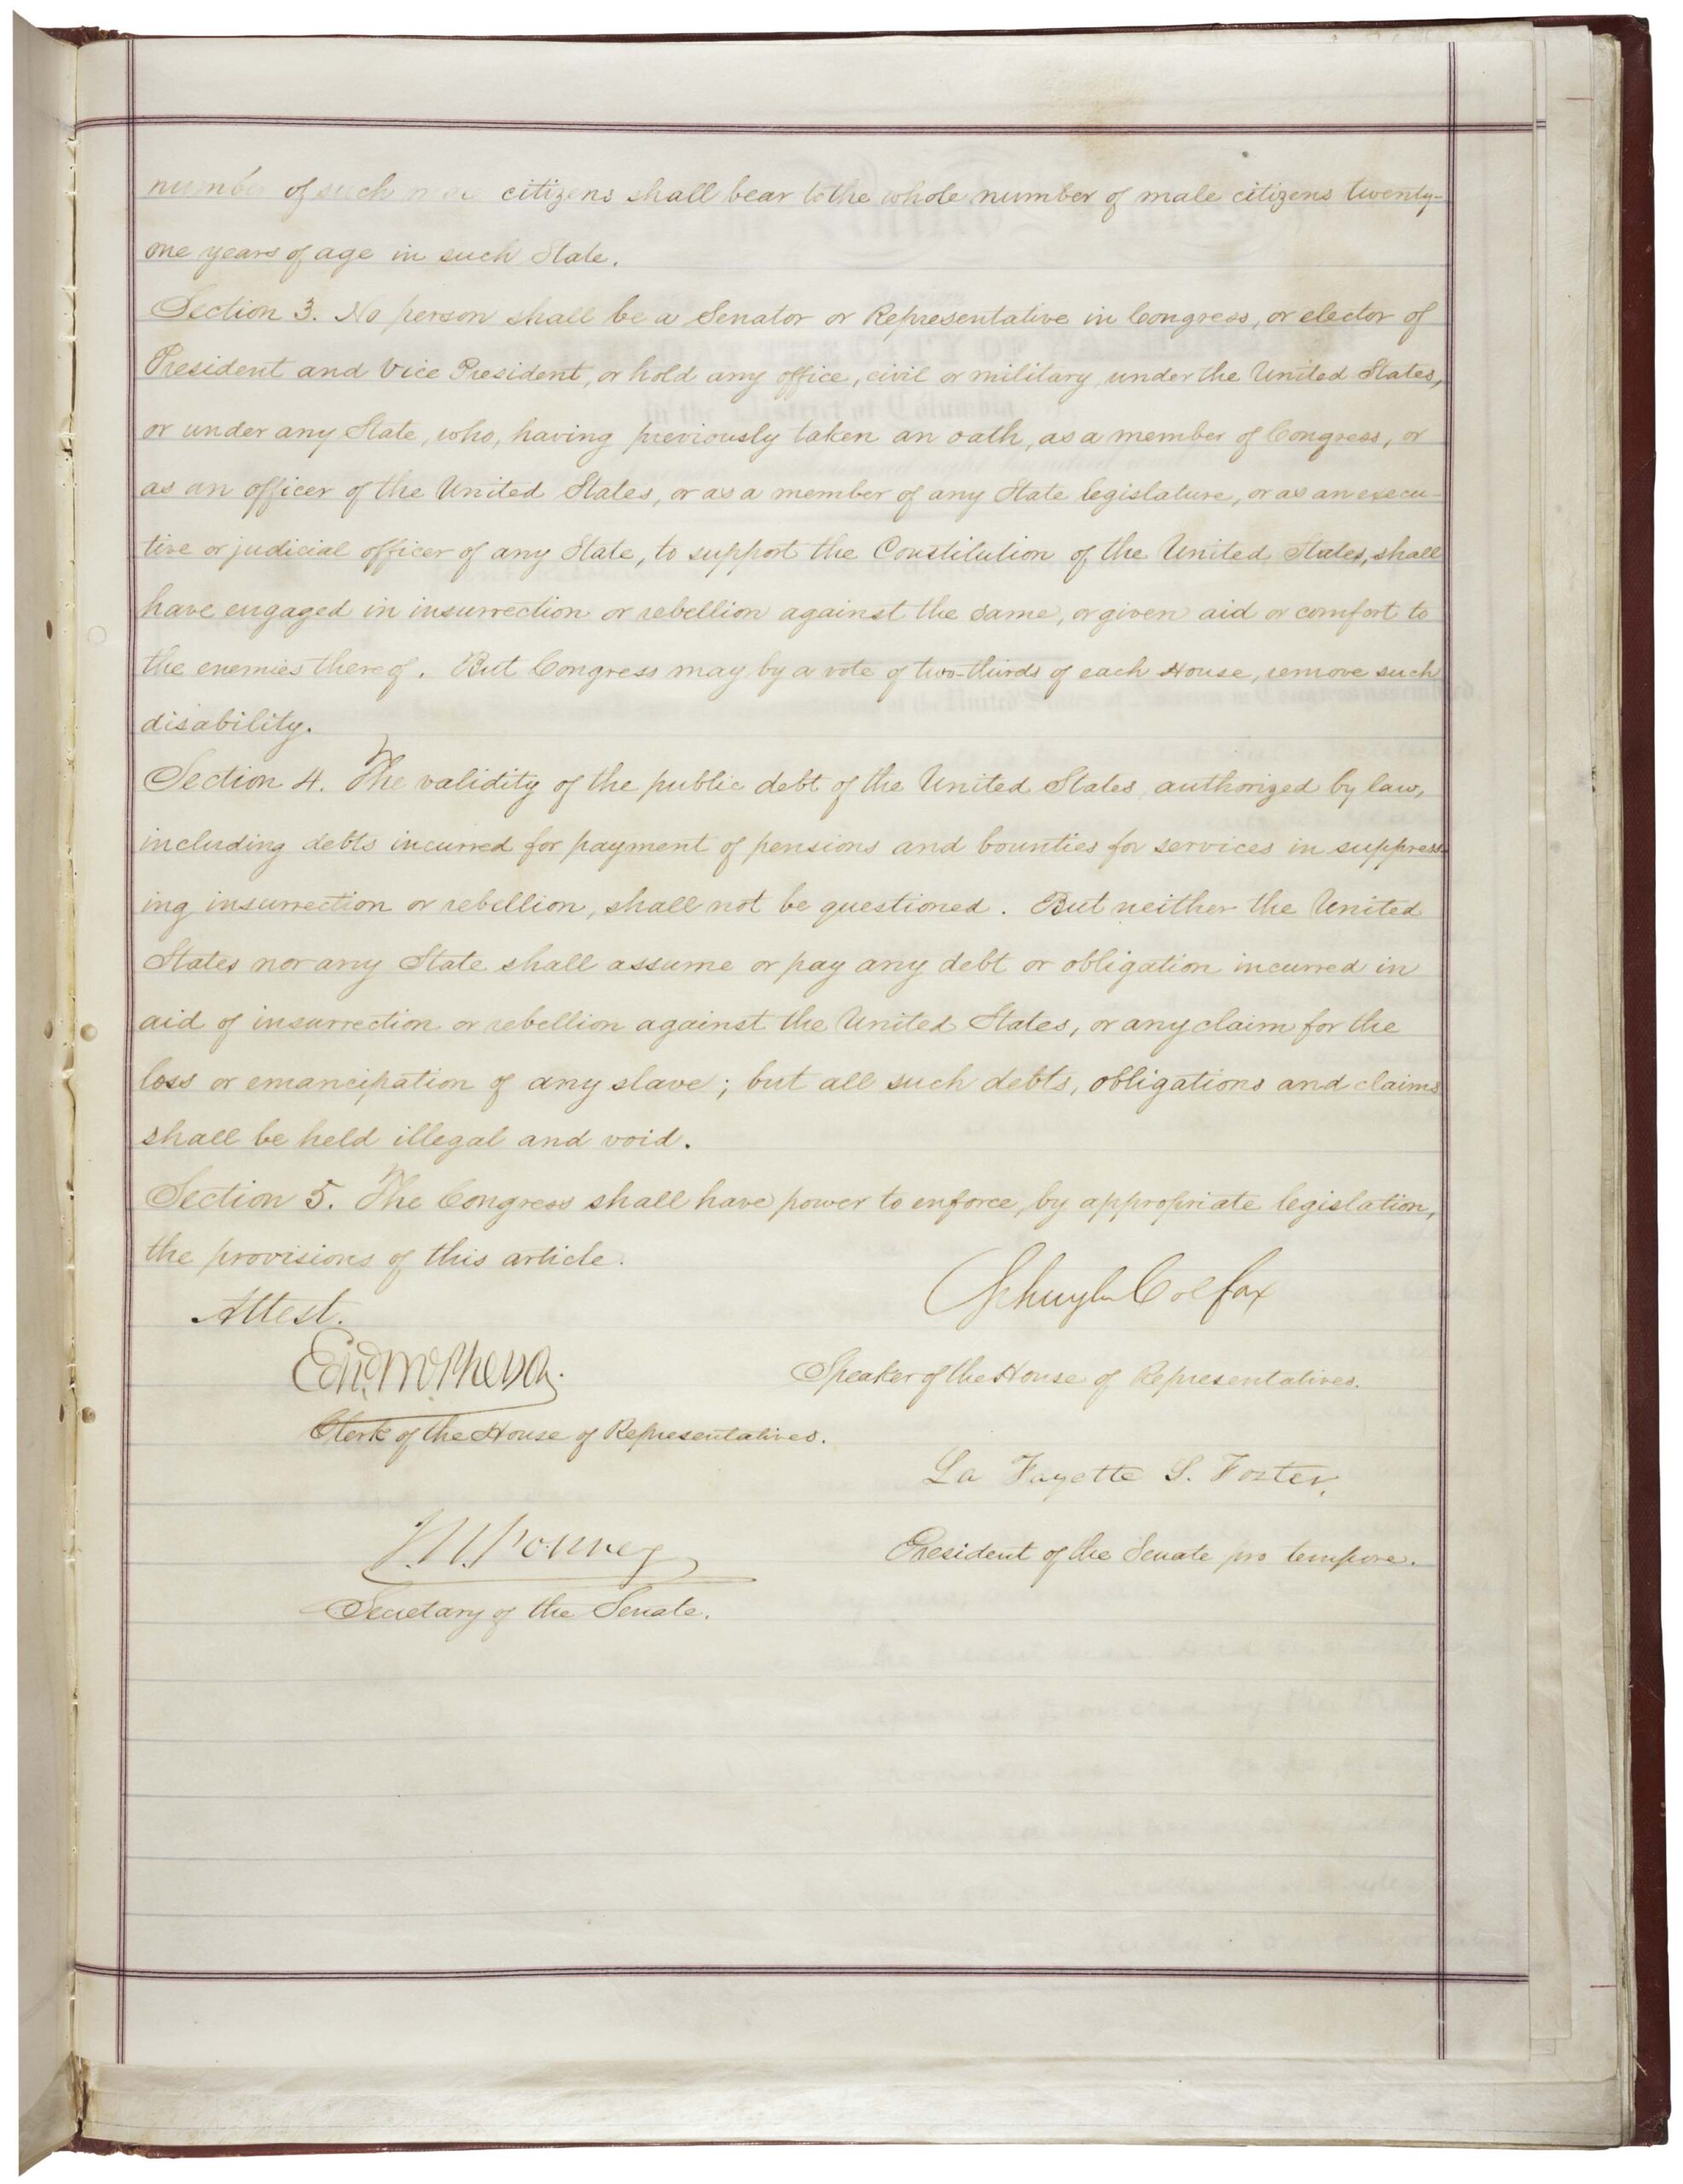 number of such male citizens shall bear to the whole number of male citizens twenty-
one years of age in such State.
Section 3. No person shall be a Senator or Representative in Congress, or elector of
President and Vice President, or hold any office, civil or military, under the United States,
or under any State, who, having previously taken an oath, as a member of Congress, or
as an officer of the United States, or as a member of any State legislature, or as an execu-
tive or judicial officer of any State, to support the Constitution of the United States, shall
have engaged in insurrection or rebellion against the same, or given aid or comfort to
the enemies thereof. But Congress may by a vote of two-thirds of each House, remove such
disability.
Section 4. The validity of the public debt of the United States, authorized by law,
including debts incurred for payment of pensions and bounties for services in suppress-
ing insurrection or rebellion, shall not be questioned. But neither the United
States nor any State shall assume or pay any debt or obligation incurred in
aid of insurrection or rebellion against the United States, or any claim for the
loss or emancipation of any slave; but all such debts, obligations and claims
shall be held illegal and void.
Section 5. The Congress shall have power to enforce, by appropriate legislation,
the provisions of this article.
Schuyler Colfax
Attest.
Speaker of the House of Representatives.
Edwd. McPherson.
Clerk of the House of Representatives.
La Fayette S. Foster,
President of the Senate pro tempore.
J. W. Forney
Secretary of the Senate.